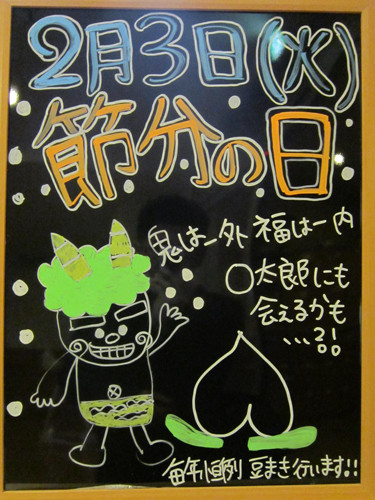 2月3日(火)
節分の日
鬼は一外 福は一内
○太郎にも
会えるかも
...?!
毎年恒例 豆まき行います!!